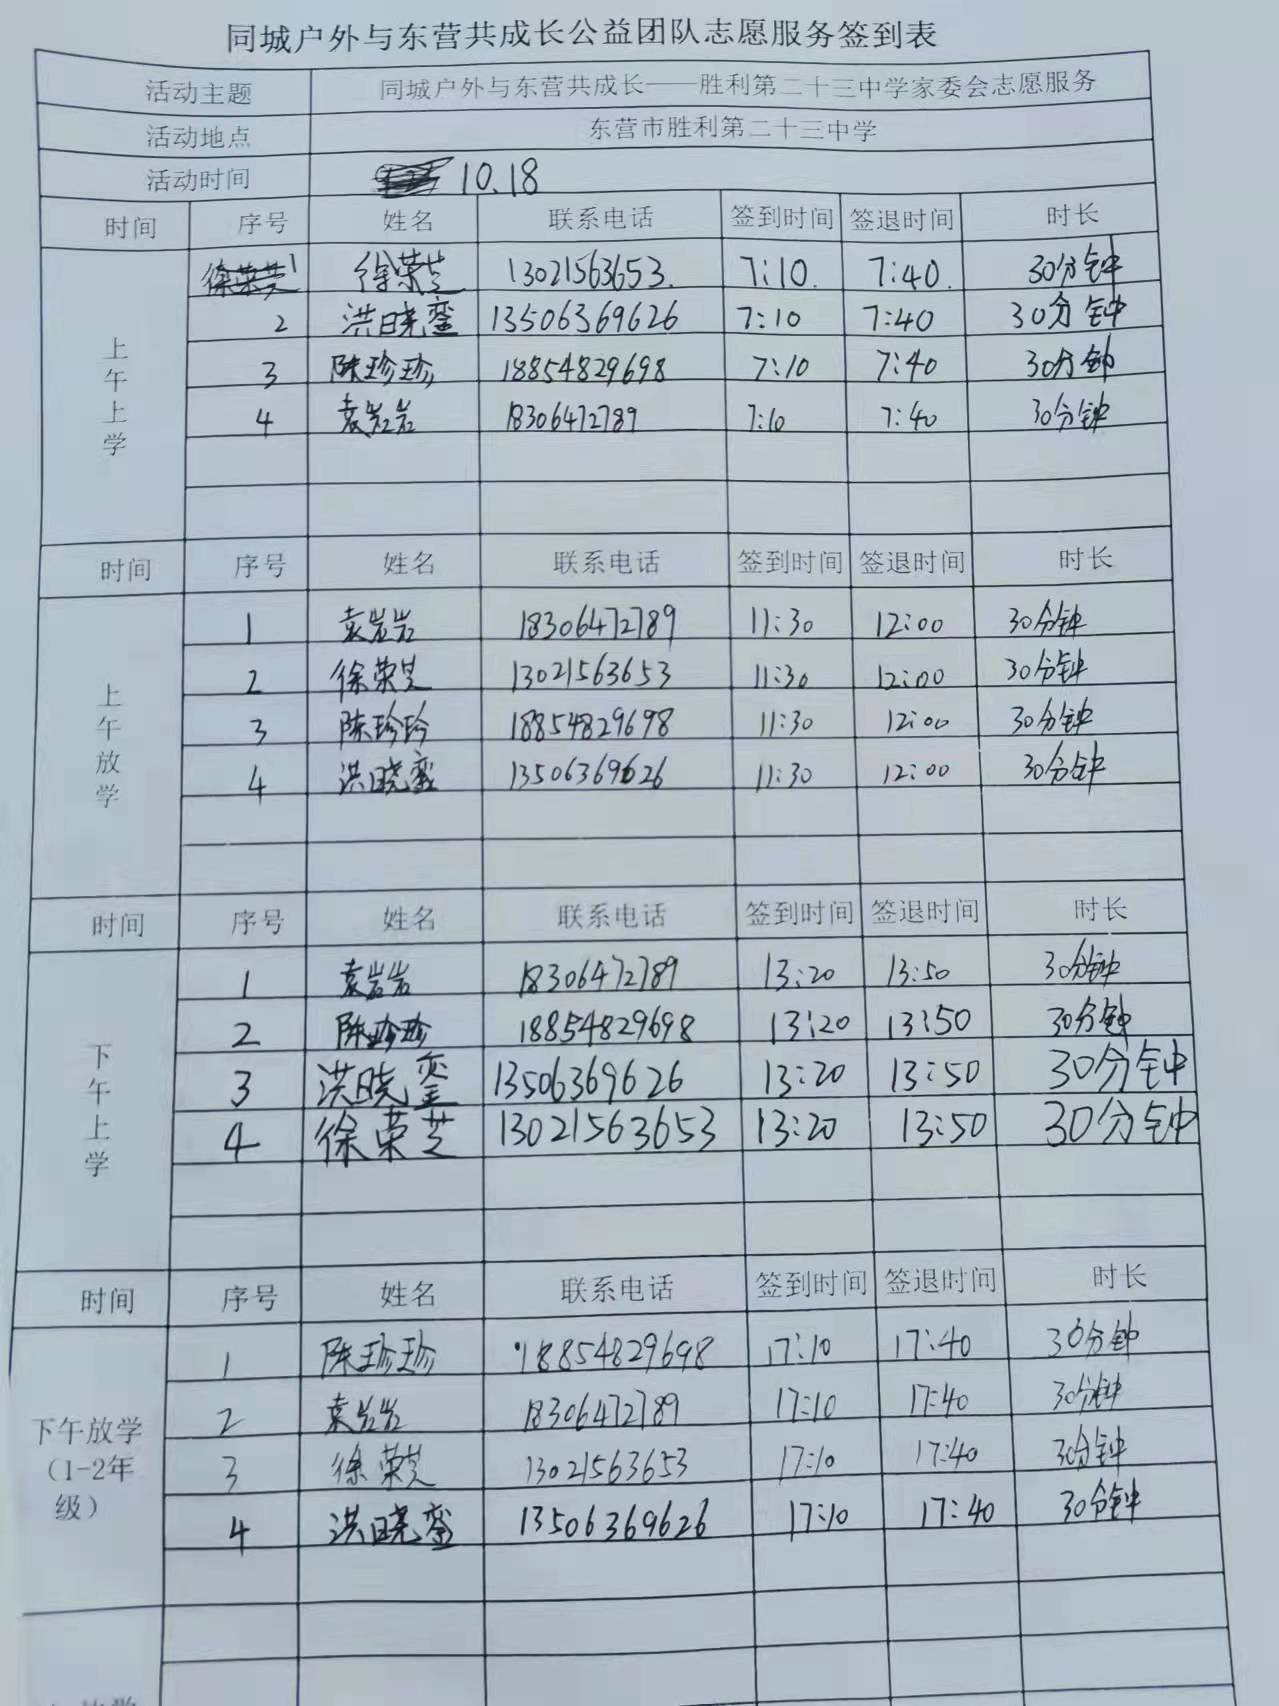 同城户外与东营共成长公益团队志愿服务签到表
活动主题 同城户外与东营共成长——胜利第二十三中学家委会志愿服务
活动地点 东营市胜利第二十三中学
活动时间 10.18
时间 序号 姓名 联系电话 签到时间 签退时间 时长
上午上学
1 徐荣芝 13021563653 7:10 7:40 30分钟
2 洪晓銮 13506369626 7:10 7:40 30分钟
3 陈珍珍 18854829698 7:10 7:40 30分钟
4 袁岩岩 18306472789 7:10 7:40 30分钟
时间 序号 姓名 联系电话 签到时间 签退时间 时长
上午放学
1 袁岩岩 18306472789 11:30 12:00 30分钟
2 徐荣芝 13021563653 11:30 12:00 30分钟
3 陈珍珍 18854829698 11:30 12:00 30分钟
4 洪晓銮 13506369626 11:30 12:00 30分钟
时间 序号 姓名 联系电话 签到时间 签退时间 时长
下午上学
1 袁岩岩 18306472789 13:20 13:50 30分钟
2 陈珍珍 18854829698 13:20 13:50 30分钟
3 洪晓銮 13506369626 13:20 13:50 30分钟
4 徐荣芝 13021563653 13:20 13:50 30分钟
时间 序号 姓名 联系电话 签到时间 签退时间 时长
下午放学
(1-2年
级)
1 陈珍珍 18854829698 17:10 17:40 30分钟
2 袁岩岩 18306472789 17:10 17:40 30分钟
3 徐荣芝 13021563653 17:10 17:40 30分钟
4 洪晓銮 13506369626 17:10 17:40 30分钟